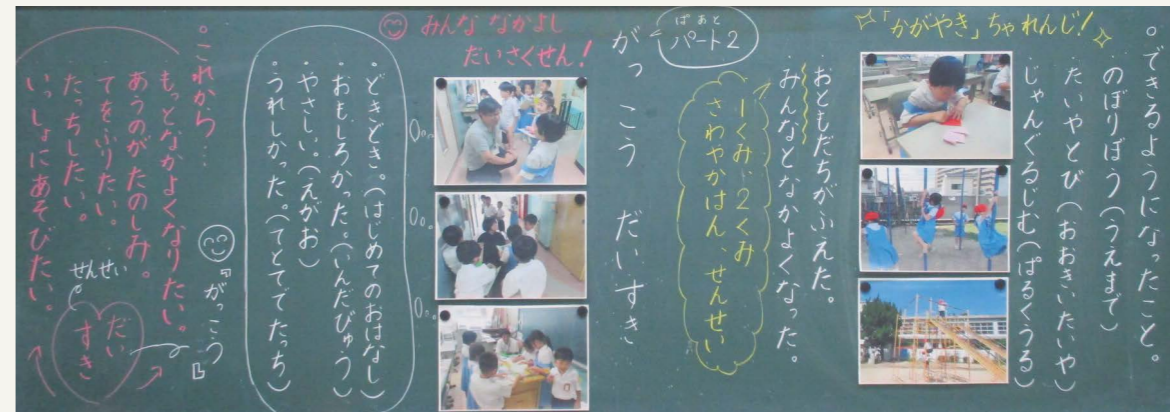 「かがやき」ちゃれんじ!
。できるようになったこと。
・のぼりぼう(うえまで)
・たいやとび(おおきいたいや)
・じゃんぐるじむ(ぱるくうる)
ぱあと
パート2
がっこう だいすき
おともだちがふえた。
みんなとなかよくなった。
1くみ、2くみ
さわやかはん、せんせい
みんな なかよし
だいさくせん!
・どきどき。(はじめてのおはなし)
・おもしろかった。(いんだびゅう)
・やさしい。(えがお)
・うれしかった。(てとてでたっち)
。これから…
もっとなかよくなりたい。
あうのがたのしみ。
てをふりたい。
たっちしたい。
いっしょにあそびたい。
『がっこう』
せんせい
だい
すき